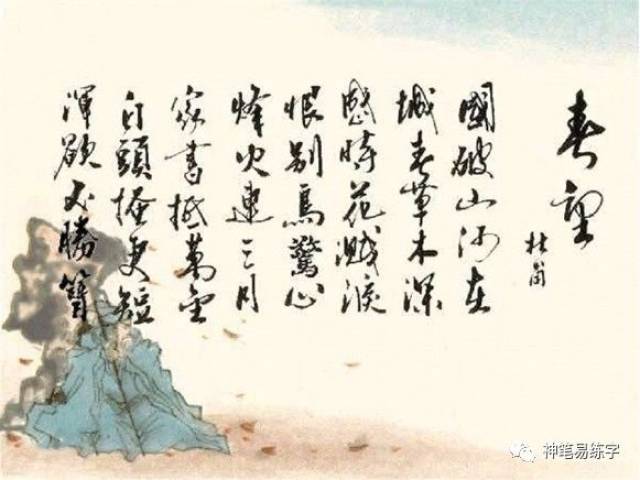 春望
杜甫
國破山河在
城春草木深
感時花濺淚
恨別鳥驚心
烽火連三月
家書抵萬金
白頭搔更短
渾欲不勝簪
神笔易练字